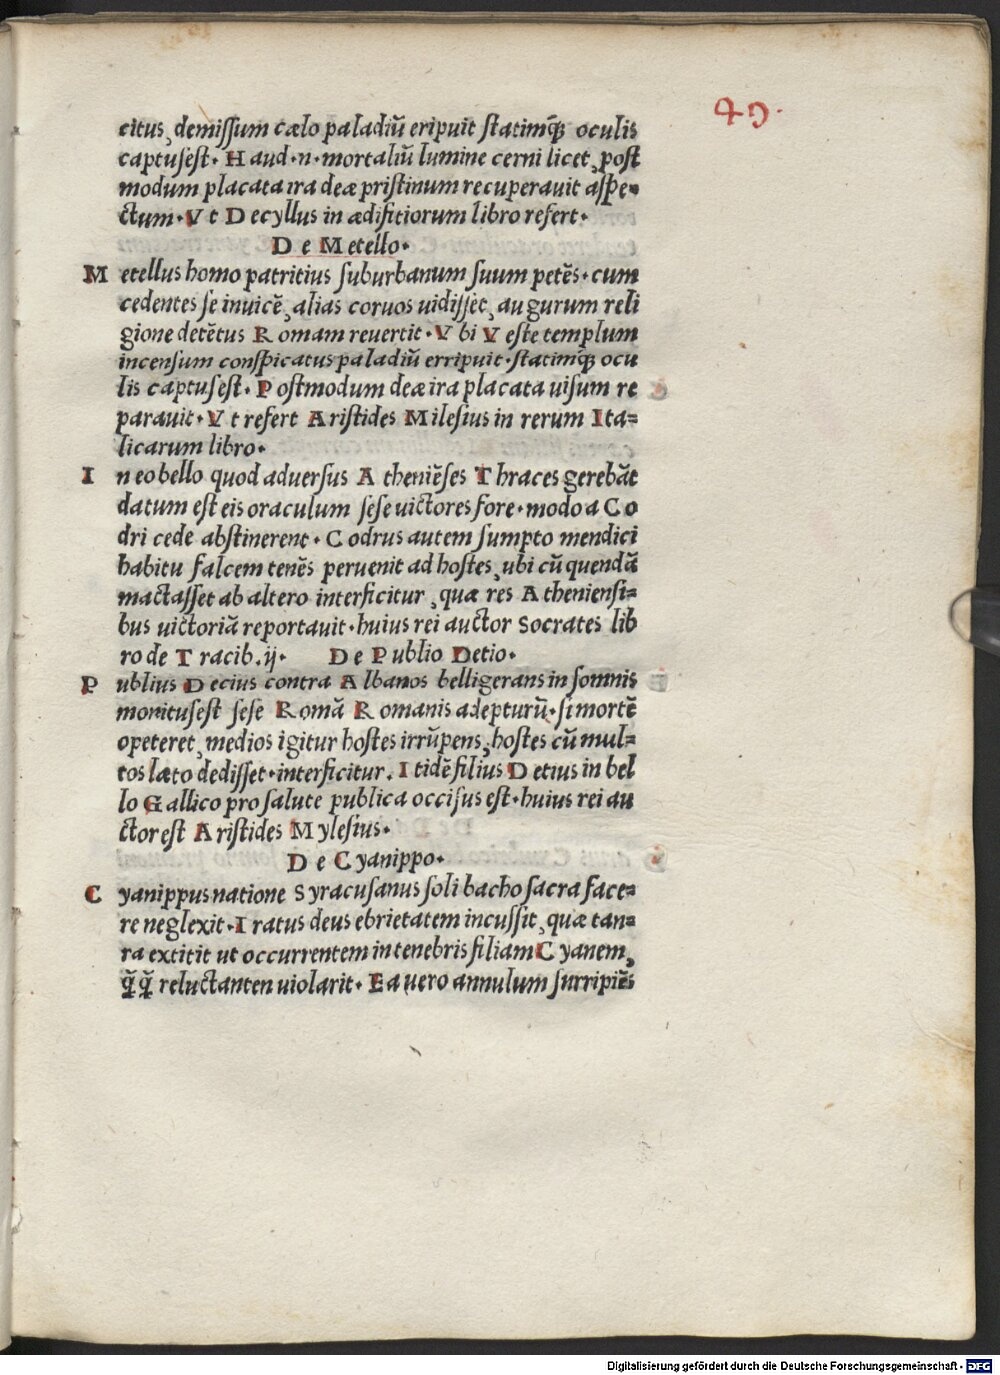 49.
citus, demissum cælo paladiũ eripuit statimq̃ꝫ oculis
captusest. Haud.n.mortaliũ lumine cerni licet, post
modum placata ira deæ pristinum recuperauit aspe-
ctum. Vt Decyllus in ædifitiorum libro refert.
De Metello.
Metellus homo patritius suburbanum suum petẽs. cum
cedentes se inuicẽ, alias coruos uidisset, augurum reli
gione detẽtus Romam reuertit. Vbi Veste templum
incensum conspicatus paladiũ erripuit. statimq̃ꝫ ocu
lis captusest. Postmodum deæ ira placata uisum re
parauit. Vt refert Aristides Milesius in rerum Ita-
licarum libro.
In eo bello quod aduersus Atheniẽses Thraces gerebãt
datum est eis oraculum sese uictores fore. modo a Co
dri cede abstinerent. Codrus autem sumpto mendici
habitu falcem tenẽs peruenit ad hostes, ubi cũ quendã
mactasset ab altero interficitur, quæ res Atheniensi-
bus uictoriã reportauit. huius rei auctor Socrates lib
ro de Tracib.ij. De Publio Detio.
Publius Decius contra Albanos belligerans in somnis
monitusest sese Romã Romanis adepturũ. si mortẽ
opeteret, medios igitur hostes irrũpens, hostes cũ mul-
tos læto dedisset. interficitur. Itidẽ filius Detius in bel
lo Gallico pro salute publica occisus est. huius rei au
ctor est Aristides Mylesius.
De Cyanippo.
Cyanippus natione Syracusanus soli bacho sacra face-
re neglexit. Iratus deus ebrietatem incussit, quæ tan-
ra extitit ut occurrentem in tenebris filiam Cyanem,
q̃q̃ reluctanten uiolarit. Ea uero annulum surripiẽs
Digitalisierung gefördert durch die Deutsche Forschungsgemeinschaft - DFG